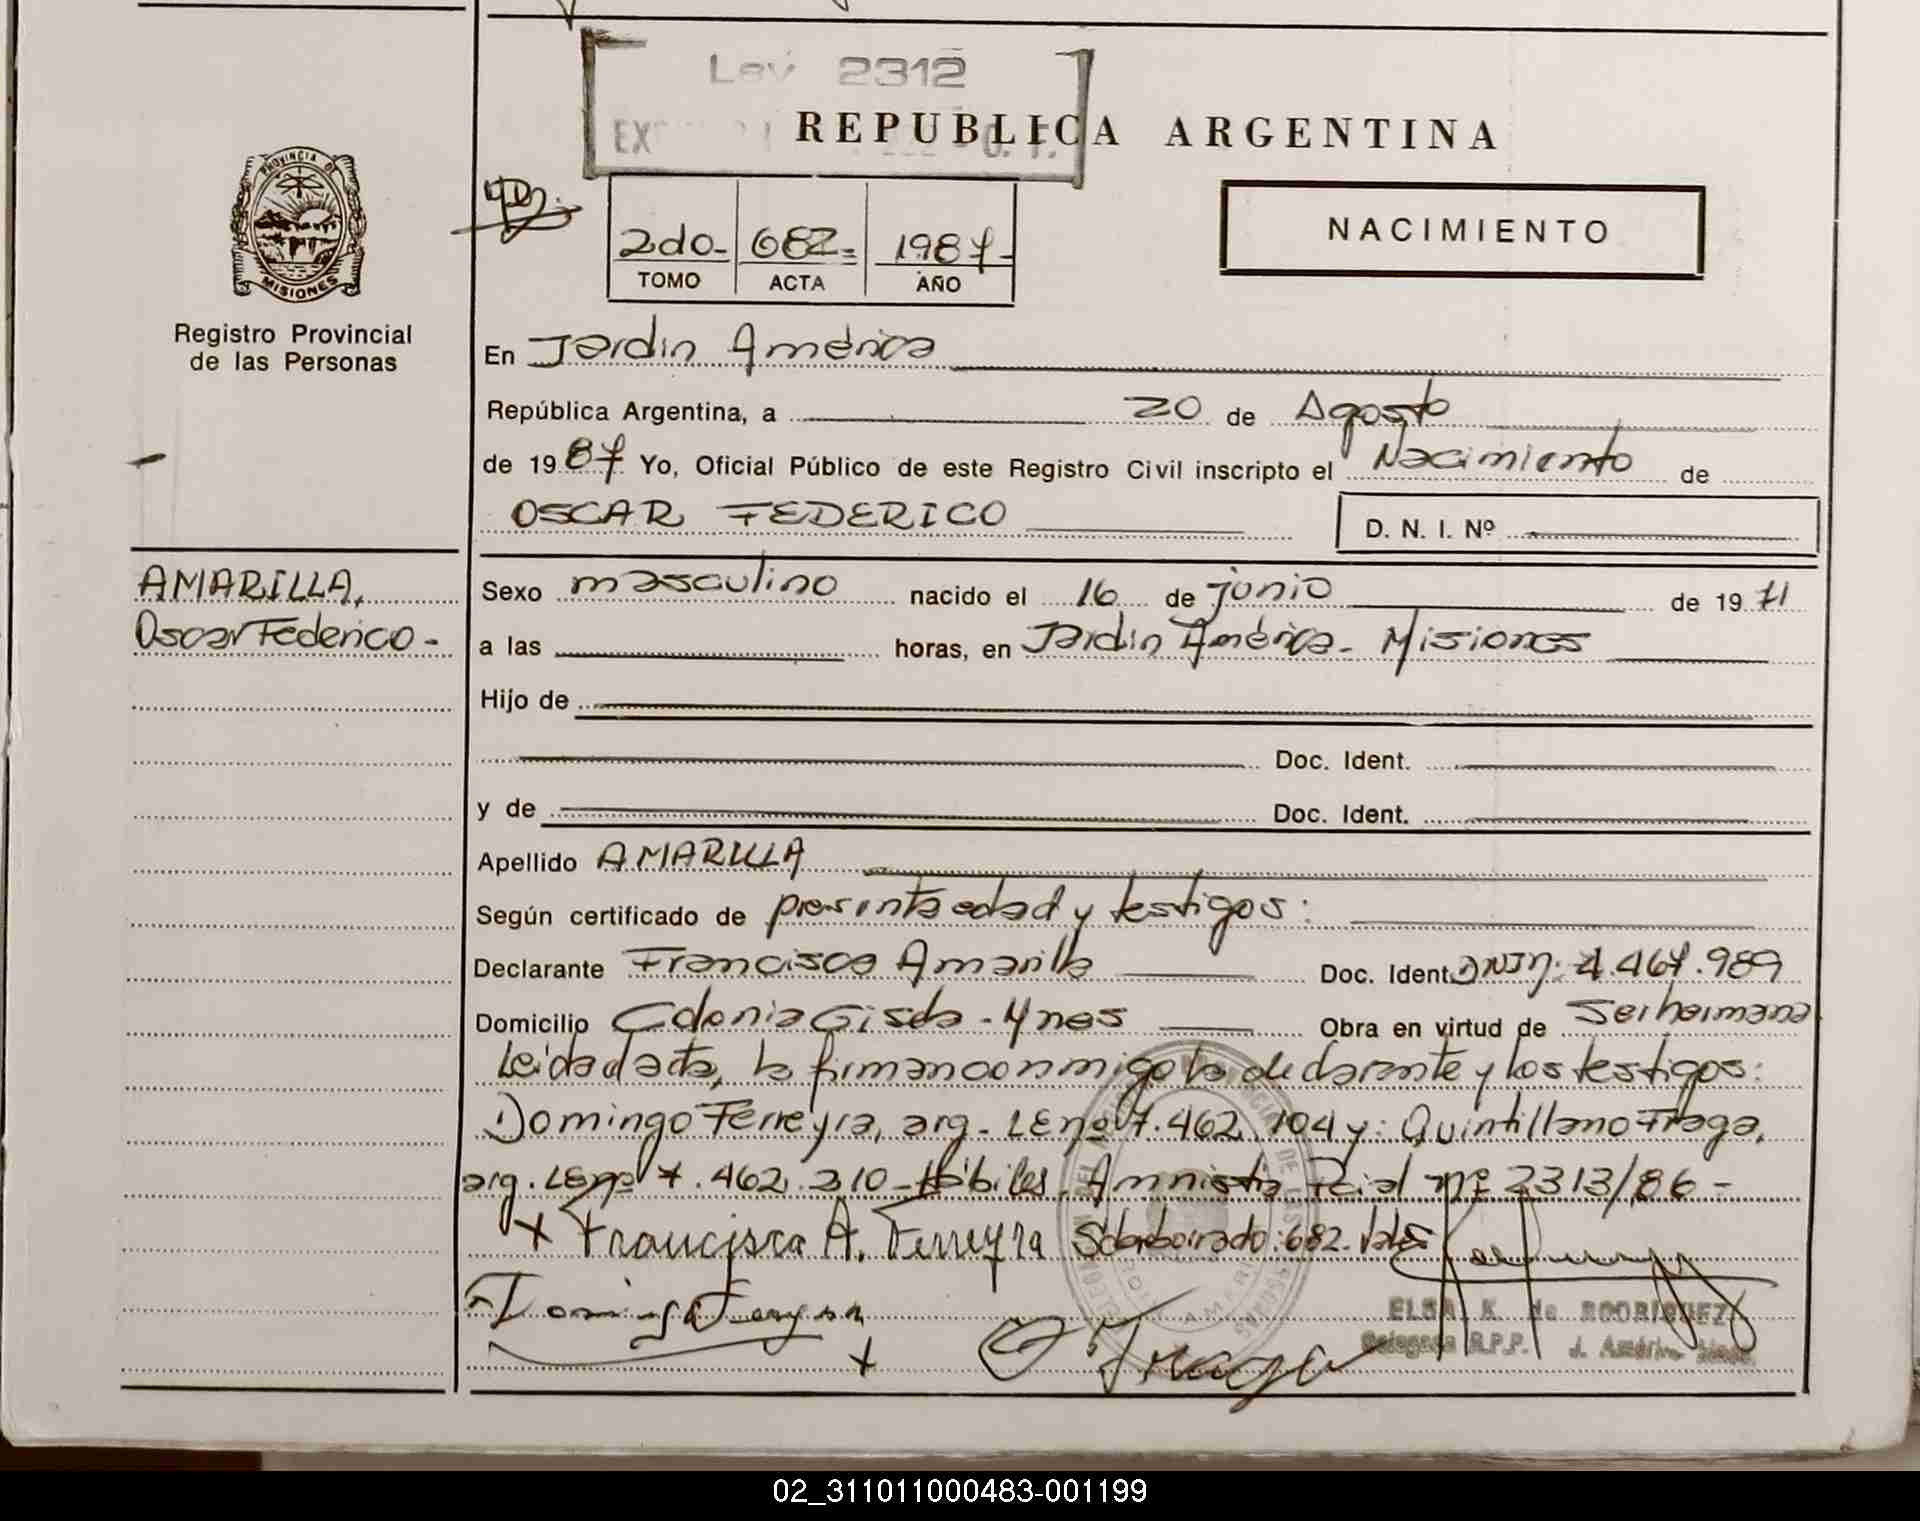 Ley 2312
REPUBLICA ARGENTINA
PROVINCIA DE
MISIONES
NACIMIENTO
2do- 682= 1987-
TOMO ACTA AÑO
Registro Provincial
de las Personas
En Jardin América
República Argentina, a 20 de Agosto
de 1987 Yo, Oficial Público de este Registro Civil inscripto el Nacimiento de
OSCAR FEDERICO D. N. I. Nº
AMARILLA,
Oscar Federico -
Sexo masculino nacido el 16 de junio de 1971
a las horas, en Jardin América - Misiones
Hijo de
Doc. Ident.
y de Doc. Ident.
Apellido AMARILLA
Según certificado de presinta edad y testigos:
Declarante Francisca Amarilla Doc. Ident. 4.467.989
Domicilio Colonia Gisela - Ynes Obra en virtud de Ser hermana
Leida el acta, la firman conmigo la declarante y los testigos:
Domingo Ferreyra, arg. LE nº 7.462.104 y: Quintiliano Fraga,
arg. LE nº 7.462.210 - Hábiles. Amnistia Pcial nº 2313/86 -
x Francisca A. Ferreyra Sobreborrado: 682. Vale
Domingo Ferreyra
x Fraga
ELSA K. de RODRIGUEZ
Delegada R.P.P. J. América
02_311011000483-001199